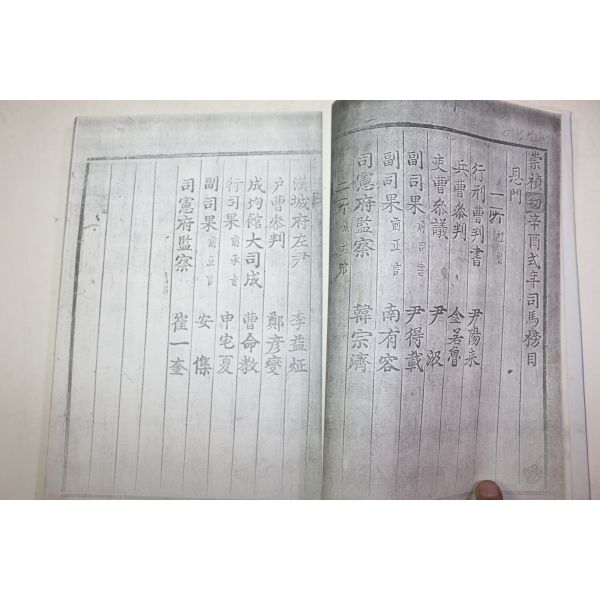 崇禎 辛酉式年司馬榜目
恩門
一所
行刑曹判書 尹陽來
兵曹參判 金若魯
吏曹參議 尹汲
副司果 尹得載
副司果 前正言 南有容
司憲府監察 韓宗濟
二所
漢城府左尹 李益炡
戶曹參判 鄭彥燮
成均館大司成 曹命教
行司果 前承旨 申宅夏
副司果 前正言 安㒞
司憲府監察 崔一奎